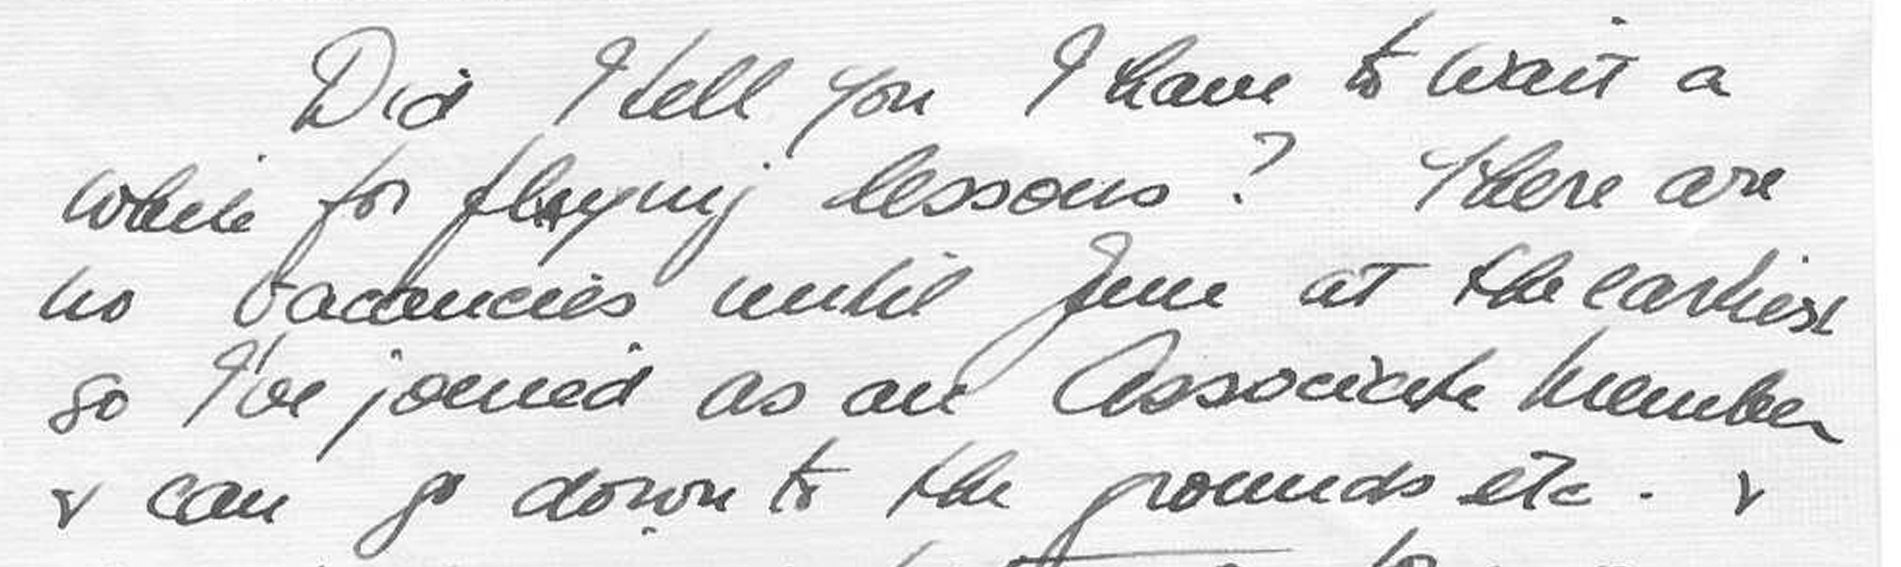 Did I tell you I have to wait a
while for flying lessons? There are
no vacancies until June at the earliest
so I've joined as an Associate Member
& can go down to the grounds etc. &